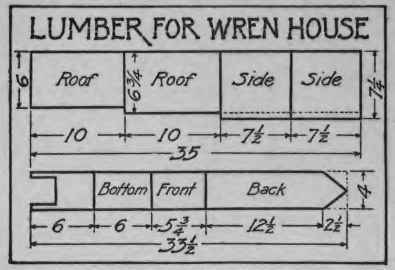 LUMBER FOR WREN HOUSE
6 Roof 6 3/4 Roof Side Side 7 1/4
10 10 7 1/2 7 1/2
35
Bottom Front Back 4
6 6 5 3/4 12 1/2 2 1/2
33 1/2